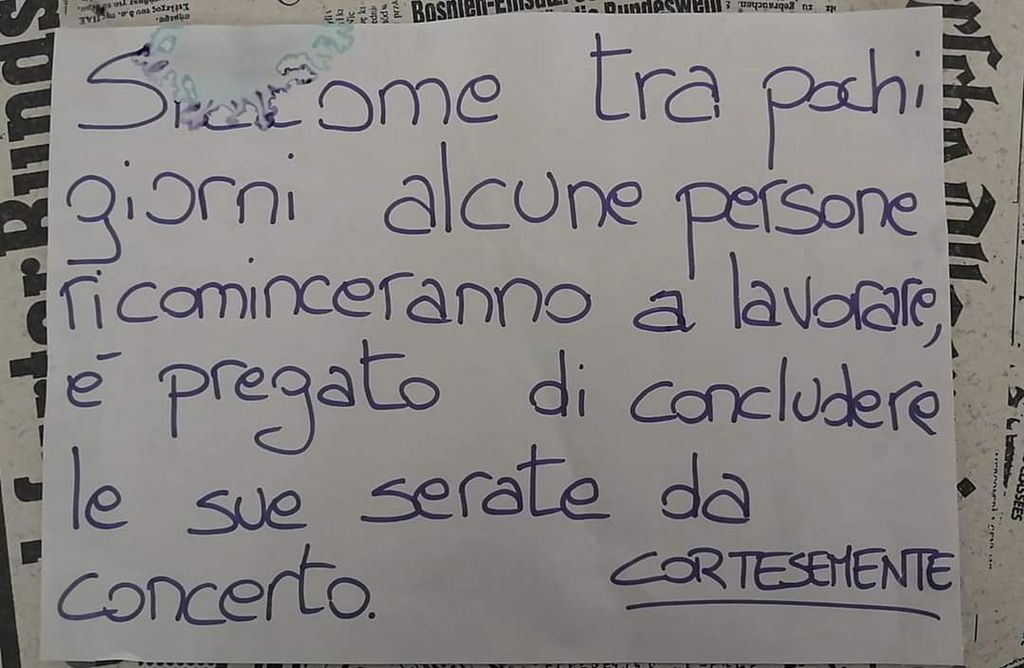 Siccome tra pochi
giorni alcune persone
ricominceranno a lavorare,
é pregato di concludere
le sue serate da
concerto. CORTESEMENTE